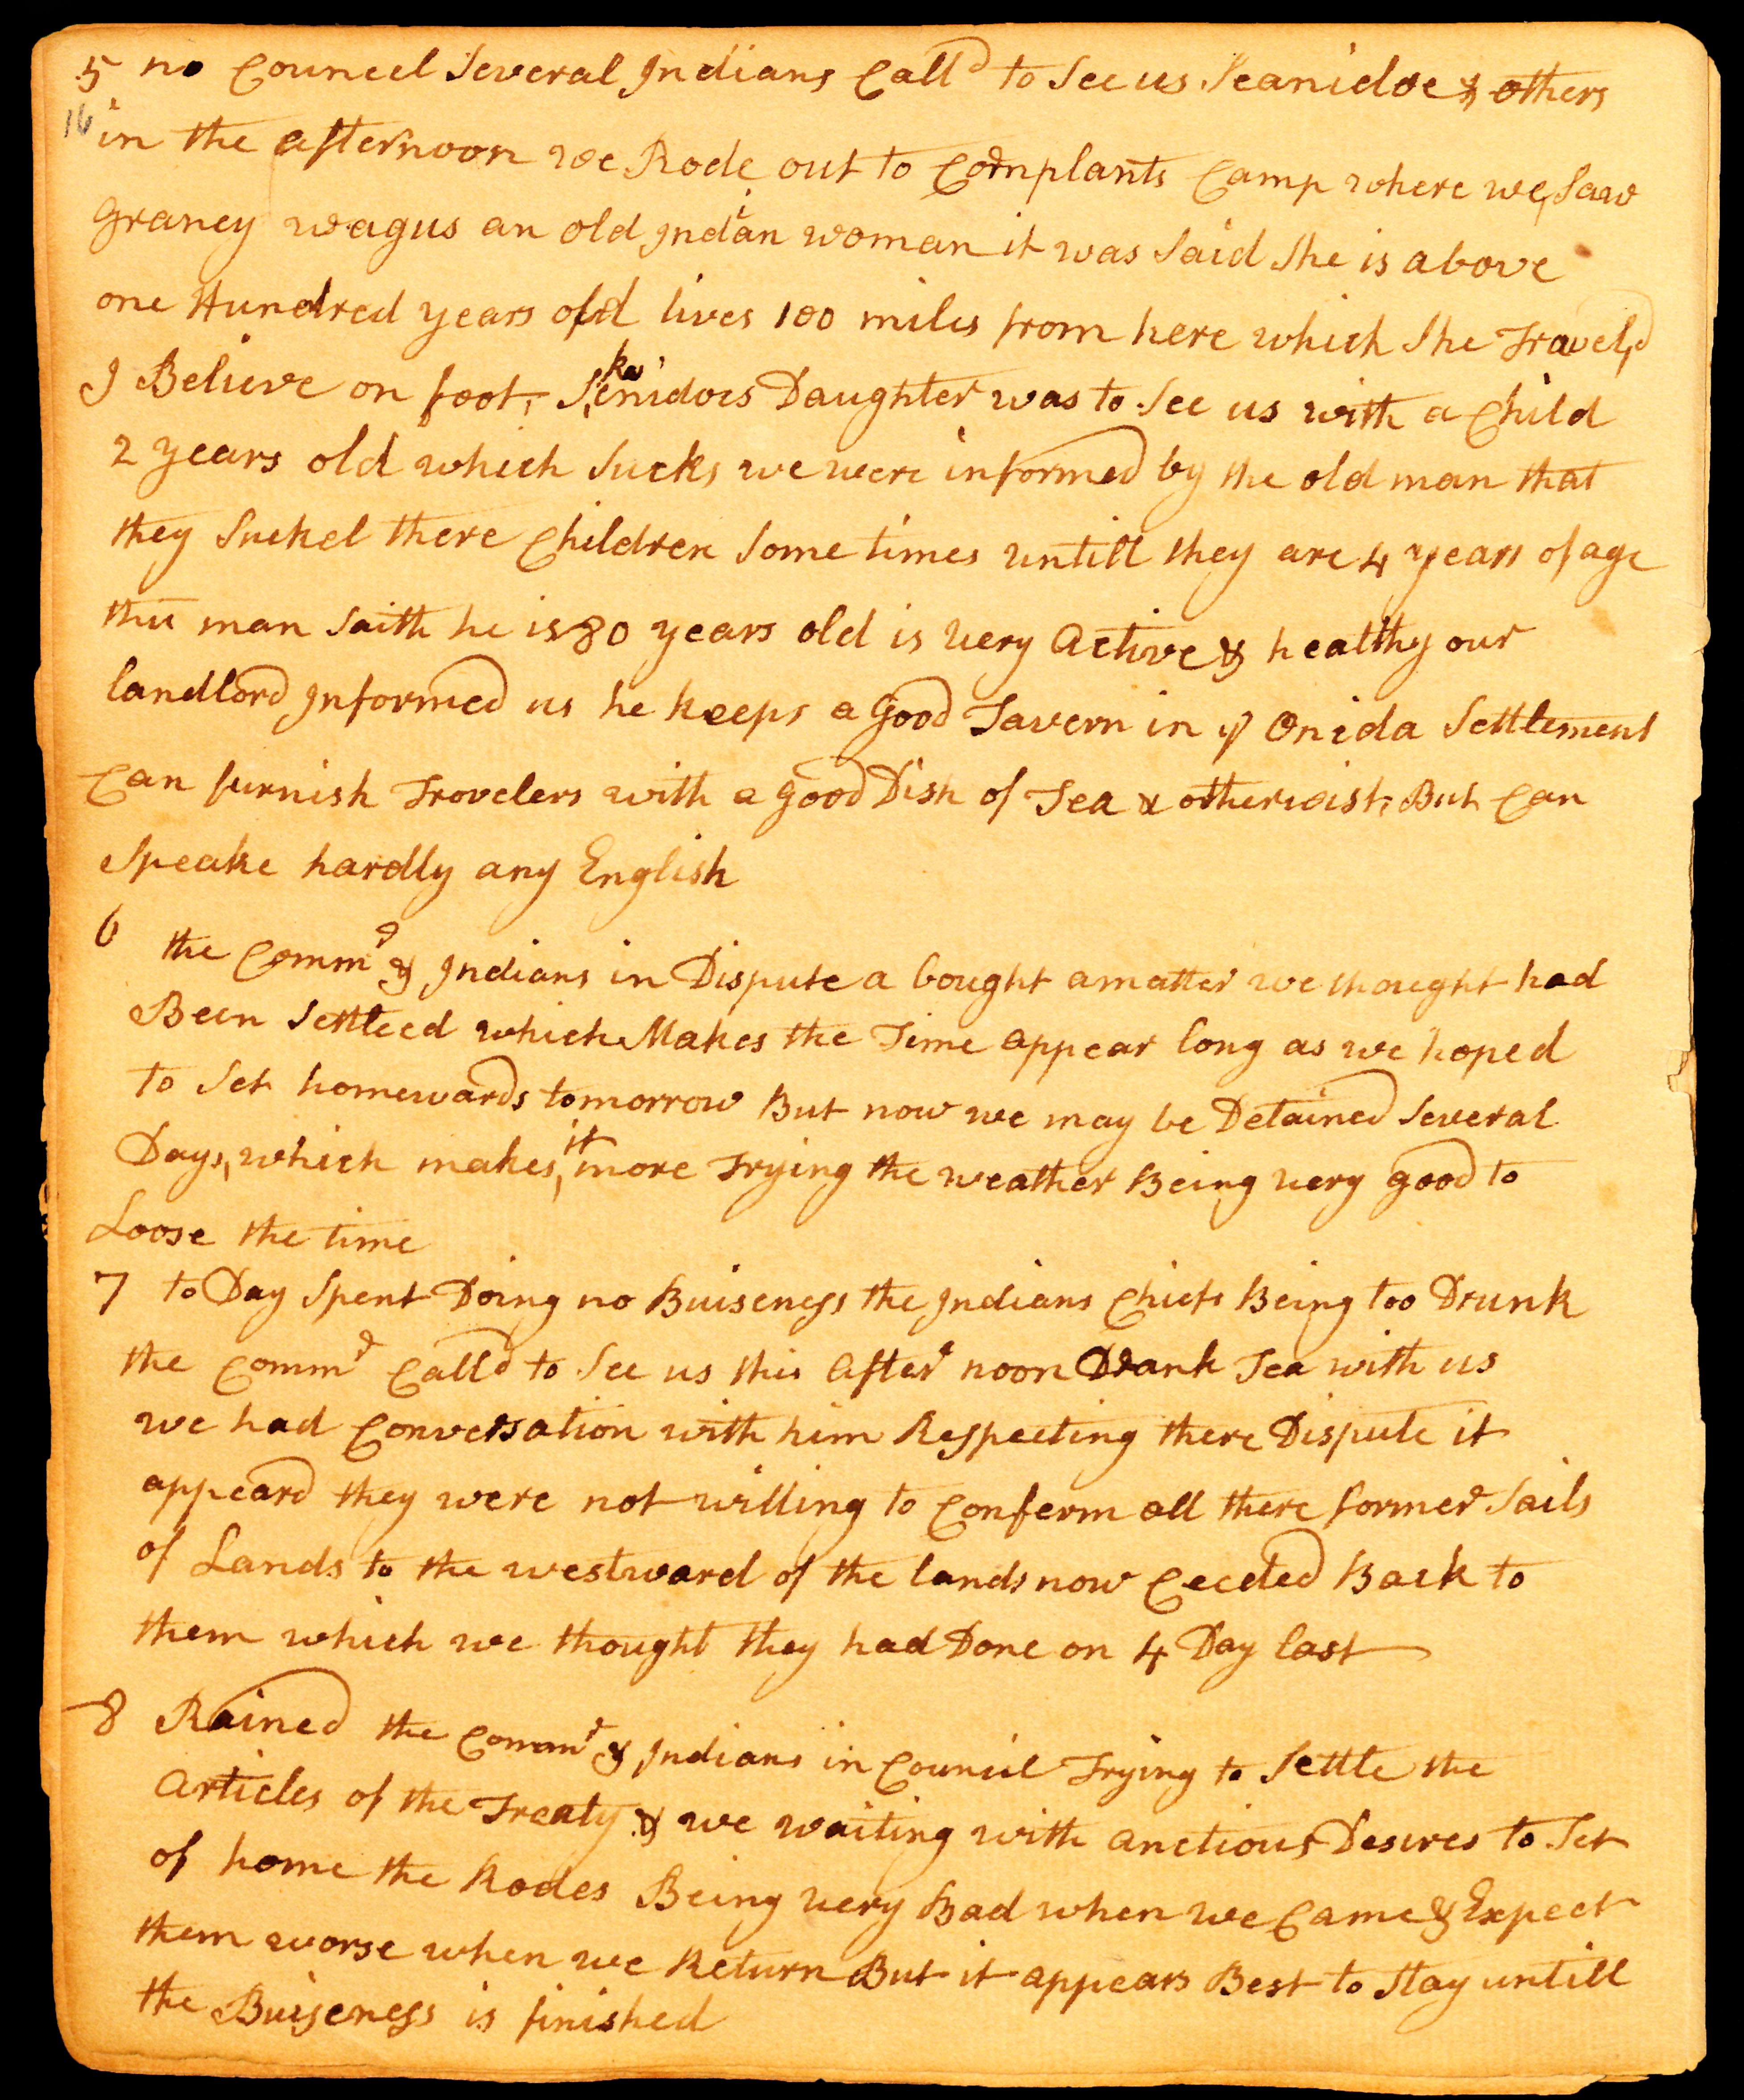 5 no Councel Several Indians Calld to See us Scanidoe & others
16
in the afternoon we Rode out to Cornplants Camp where we Saw
Graney wagus an old Indian woman it was Said She is above
one Hundred years old lives 100 miles from here which She Traveld
I Believe on foot, Skanidoes Daughter was to See us with a Child
2 years old which Sucks we were informed by the old man that
they Suckel there Children Some times untill they are 4 years of age
this man Saith he is 80 years old is very Active & healthy our
landlord Informed us he keeps a Good Tavern in ye Onida Settlement
Can furnish Trovelers with a good Dish of Tea & otherwist, But Can
Speake hardly any English
6 the Commr & Indians in Dispute a bought a matter we thought had
Been Settleed which Makes the Time appear long as we hoped
to Set homewards tomorrow But now we may be Detained Several
Days, which makes it more Trying the weather Being very good to
Loose the time
7 to Day Spent Doing no Buiseness the Indians Chiefs Being too Drunk
the Commr Calld to See us this After noon Drank Tea with us
we had Conversation with him Respecting there Dispute it
appeard they were not willing to Conferm all there former Sails
of Lands to the westward of the lands now Ceeded Back to
them which we thought they had Done on 4 Day last
8 Rained the Commr & Indians in Council Trying to Settle the
Articles of the Treaty & we waiting with anctious Desires to Set
of home the Rodes Being very Bad when we Came & Expect
them worse when we Return But it appears Best to Stay untill
the Buiseness is finished